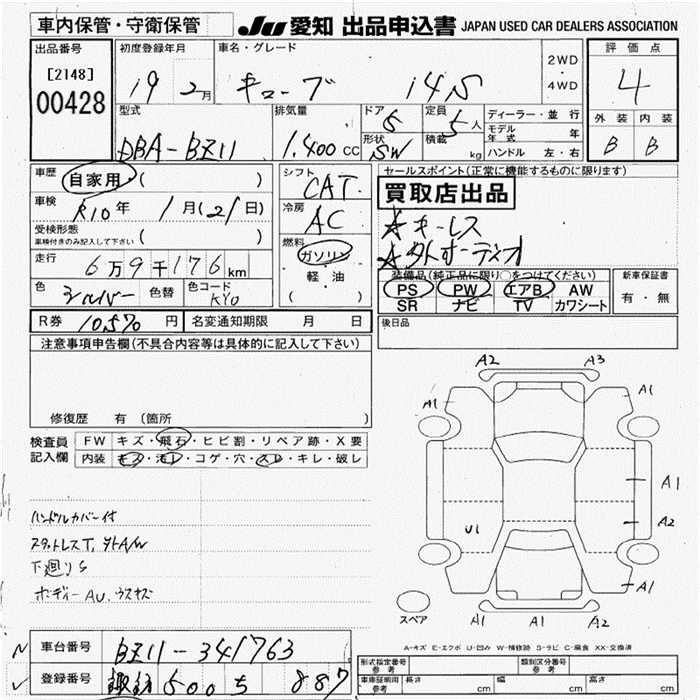 車内保管・守衛保管 JU 愛知 出品申込書 JAPAN USED CAR DEALERS ASSOCIATION
出品番号 初度登録年月 車名・グレード 評価点
[2148] 19 2月 キューブ 14S 2WD・4WD 4
00428
型式 排気量 ドア 定員 ディーラー・並行 外装 内装
DBA-BZ11 1.400cc 5 5人 モデル年式 年 B B
形状 SW 積載 kg ハンドル 左・右
車歴 自家用 ( ) シフト CAT セールスポイント(正常に機能するものに限ります)
車検 R10年 1月(21日) 冷房 AC 買取店出品
受検形態 ( ) ☆キーレス
車検付きのみ記入して下さい 燃料 ☆外オーディオ
走行 6万9千176km ガソリン
軽・油 装備品(純正品に限り○をつけてください) 新車保証書
色 シルバー 色替 色コード KY0 ( ) PS PW エアB AW 有・無
SR ナビ TV カワシート
R券 10,570円 名変通知期限 月 日 後日品
注意事項申告欄(不具合内容等は具体的に記入して下さい)
修復歴 有 (箇所 )
検査員 FW キズ・飛石・ヒビ割・リペア跡・X要
記入欄 内装 キズ・汚レ・コゲ・穴・スレ・キレ・破レ
A2 A3
A1 A1
A1
U1 A2
A1
A1 A1 A2
スペア
ハンドルカバー付
スタットレスT,外A/W
下廻りS
ボディーAU.ウスキズ
A-キズ E-エクボ U-凹み W-補修跡 S-サビ C-腐食 XX-交換済
車台番号 BZ11-341763
登録番号 諏訪 500 ち 887
形式指定番号 参考 類別区分番号 参考
車庫証明用 参考 長さ cm 幅 cm 高さ cm